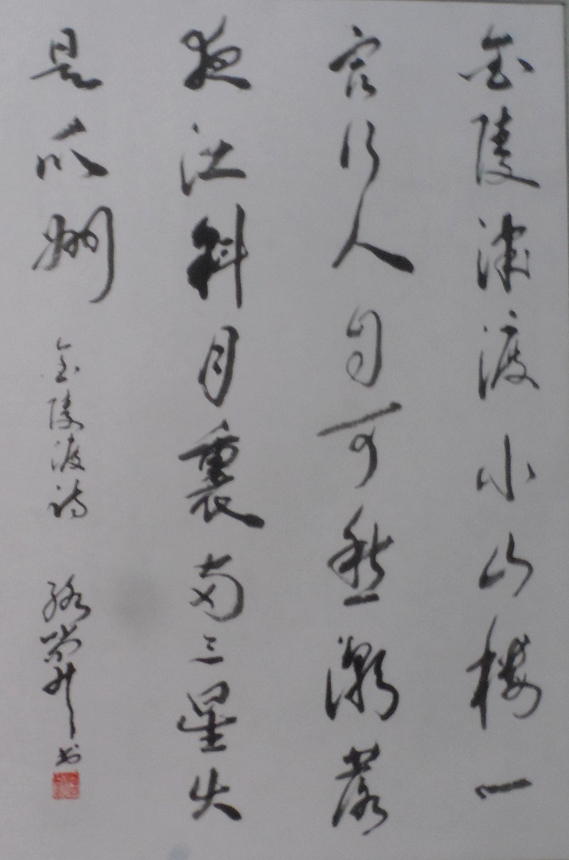 金陵津渡小山楼一
宿行人自可愁潮落
夜江斜月裏两三星火
是瓜洲 金陵渡诗 书